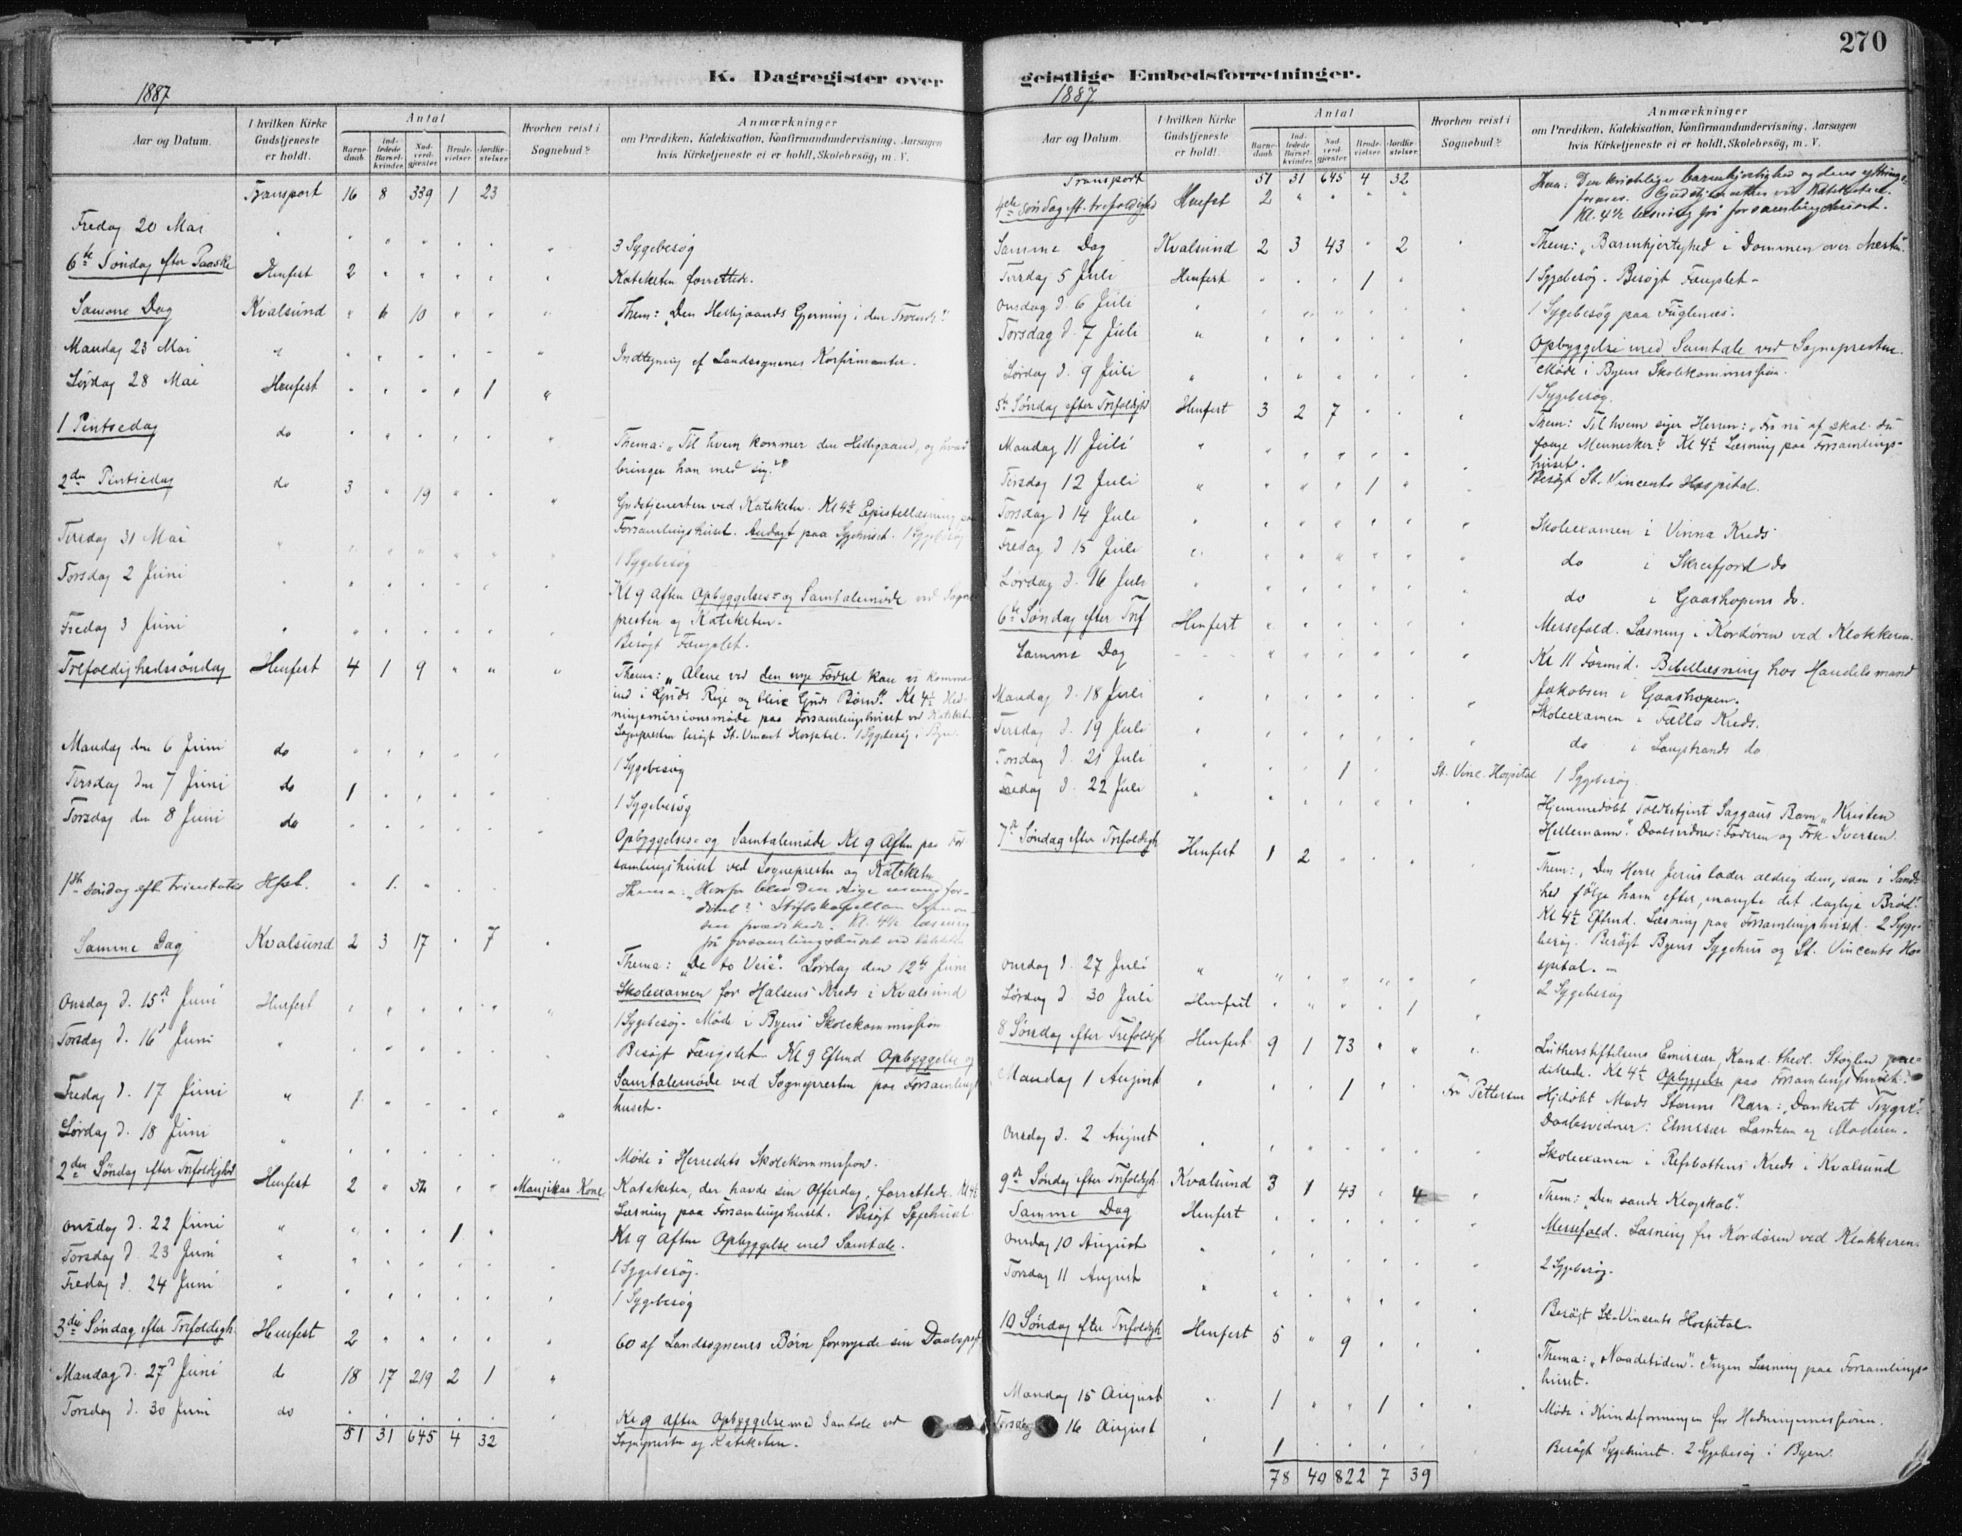 270
K. Dagregister over
1887
Aar og Datum.
I hvilken Kirke Gudstjeneste er holdt.
Antal
Barnedaab.
Indledede Barselkvinder.
Nadverdgjester
Brudevielser.
Jordkastelser.
Hvorhen reist i Sognebud?
Anmærkninger
om Prædiken, Katekisation, Konfirmandundervisning, Aarsagen
hvis Kirketjeneste ei er holdt, Skolebesøg, m. V.
Transport 16 8 339 1 23
Fredag 20 Mai 3 Sygebesøg
6te Søndag efter Paaske Hmfest 2 Katekеten forrettede.
Samme Dag Kvalsund " 6 10 Them: „Den Helligaands Gjerning i den Troende"
Mandag 23 Mai Indtegning af Landsognenes Konfirmanter.
Lørdag 28 Mai Hmfest 1
1 Pintsedag do Thema: „Til hvem kommer den Helligaand, og hvad
bringer han med sig?"
2den Pintsedag do 3 " 19 Gudstjenesten ved Kateketen. Kl 4½ Epistellæsning paa
Forsamlingshuset. Andagt paa Sygehuset. 1 Sygebesøg
Tirsdag 31 Mai 1 Sygebesøg
Torsdag 2 Juni Kl 9 Aften Opbyggelses- og Samtalemøde ved Sogne-
presten og Kateketen.
Fredag 3 Juni Besøgt Fængslet.
Trefoldighedssøndag Hmfest 4 1 9 Thema: „Alene ved den nye Fødsel kan vi komme
ind i Guds Rige og blive Guds Børn". Kl 4½ Hed-
ningemissionsmøde paa Forsamlingshuset ved Kateket.
Sognepresten besøgt St. Vincent Hospital. 1 Sygebesøg i Byen.
Mandag den 6 Juni do 1 Sygebesøg
Tirsdag den 7 Juni do 1 1 Sygebesøg
Torsdag den 8 Juni do Opbyggelses- og Samtalemøde Kl 9 Aften paa For
samlingshuset ved Sognepresten og Kateketen
1ste søndag eft. trinitatis Hfst. " 1. Thema: „Hvorfor blev den rige mand for-
dømt?" Stiftskapellan
prædikede. Kl. 4½ læsning
på forsamlingshuset ved
Samme Dag Kvalsund 2 3 17 " 7 Thema: „De to Veie". Lørdag den 12te Juni
Skoleexamen for Halsens Kreds i Kvalsund
Onsdag d. 15de Juni Hmfest 1 Sygebesøg. Møde i Byens Skolekommission
Torsdag d. 16 Juni Besøgt Fængslet. Kl 9 Eftmd Opbyggelse og
Samtalemøde ved Sognepresten paa Forsamlings
huset.
Fredag d. 17 Juni " 1
Lørdag d. 18 Juni " Møde i Herredets Skolekommission.
2den Søndag efter Trefoldighed Hmfest 2 " 32 Kone Kateketen, der havde sin Offerdag, forrettede. Kl 4½
Læsning paa Forsamlingshuset. Besøgt Sygehuset
onsdag d. 22 Juni " 1 Kl 9 Aften Opbyggelse med Samtale.
Torsdag d. 23 Juni 1 Sygebesøg.
Fredag d. 24 Juni 1 Sygebesøg
3die Søndag efter Trefoldigh. Hmfest 2 60 af Landsognenes Børn fornyede sin Daabspagt
Mandag d. 27 Juni do 18 17 219 2 1
Torsdag d. 30 Juni do Kl 9 Aften Opbyggelse med Samtale ved
Sognepresten og Kateketen.
51 31 645 4 32
geistlige Embedsforretninger.
1887
Aar og Datum
I hvilken Kirke Gudstjeneste er holdt.
Antal
Barnedaab.
Indledede Barselkvinder.
Nadverdgjester
Brudevielser.
Jordkastelser.
Hvorhen reist i Sognebud?
Anmærkninger
om Prædiken, Katekisation, Konfirmandundervisning, Aarsagen
hvis Kirketjeneste ei er holdt, Skolebesøg, m. V.
Transport 51 31 645 4 32
4de søndag eft. trefoldighed Hmfst 2 Thema: Den kristelige barmhjertighed og dens ytrings-
former. Gudstjenesten ved Kateketen.
Kl. 4½ læsning på forsamlingshuset.
Samme Dag Kvalsund 2 3 43 " 2 Them: „Barmhjertighed i Dommen over Næsten"
Tirsdag 5 Juli Hmfest 1 1 Sygebesøg. Besøgt Fængslet -
onsdag d. 6 Juli 1 Sygebesøg paa Fuglenæs.
Torsdag d. 7 Juli Opbyggelse med Samtale ved Sognepresten.
Lørdag d. 9 Juli Møde i Byens Skolekommission.
1 Sygebesøg.
5te Søndag efter Trefoldigh Hmfest 3 2 7 Them: Til hvem siger Herren: „Fra nu af skal du
fange Mennesker"? Kl 4½ Læsning paa Forsamlings-
huset.
Mandag 11 Juli
Tirsdag 12 Juli 1 Besøgt St. Vincents Hospital.
Torsdag d 14 Juli Skoleexamen i Vinna Kreds
Fredag d 15 Juli do i Skreifjord do
Lørdag d. 16 Juli do i Gaashopens do.
6te Søndag efter Tref Hmfest Messefald. Læsning i Kordøren ved Klokkeren.
Samme Dag Kl 11 Formid. Bibellæsning hos Handelsmand
Jakobsen i Gaashopen.
Mandag d. 18 Juli Skoleexamen i Fælla Kreds.
Tirsdag d. 19 Juli do i Langstrands do
Torsdag d. 21 Juli 1 St. Vinc. Hospital 1 Sygebesøg.
Fredag d. 22 Juli Hjemmedøbt Toldbetjent Saggaus Barn „Kristen
Hellemann". Daabsvidner: Faderen og Frk Iversen
7de Søndag efter Trefoldigh Hmfest 1 2 Them: „Den Herre Jesus lader aldrig dem, som i Sand-
hed følge ham efter, mangle det daglige Brød".
Kl 4½ Eftmd. Læsning paa Forsamlingshuset. 2 Syge-
besøg. Besøgt Byens Sygehus og St. Vincents Ho-
spital. -
onsdag d. 27 Juli 2 Sygebesøg
Lørdag d 30 Juli Hmfest 1
8 Søndag efter Trefoldigh Hmfest 9 1 73 Lutherstiftelsens Emissær, Kand. theol. Støylen præ-
dikede. Kl 4½ Opbyggelse paa Forsamlingshuset.
Mandag 1 August 1 Fru Pettersen Hjdøbt Mads Barn: „Dankert Trygve".
Daabsvidner: Emissær og Moderen.
Onsdag d. 2 August Skoleexamen i Refsbottens Kreds i Kvalsund
9de Søndag efter Trefoldigh. Kvalsund 3 1 43 " 4 Them: „Den sande Klogskab".
Samme Dag Hmfest Messefald. Læsning fra Kordøren ved Klokkeren.
onsdag 10 August 2 Sygebesøg.
Torsdag 11 August Besøgt St. Vincents Hospital.
10 Søndag efter Trefoldigh Hmfest 5 " 9 Thema: „Naadetiden". Ingen Læsning paa Forsamlings-
huset.
Mandag 15 August 1 " " 1 Møde i Kvindeforeningen for Hedningemissionen.
Torsdag 16 August 1 Besøgt Sygehuset. 2 Sygebesøg i Byen.
78 40 822 7 39